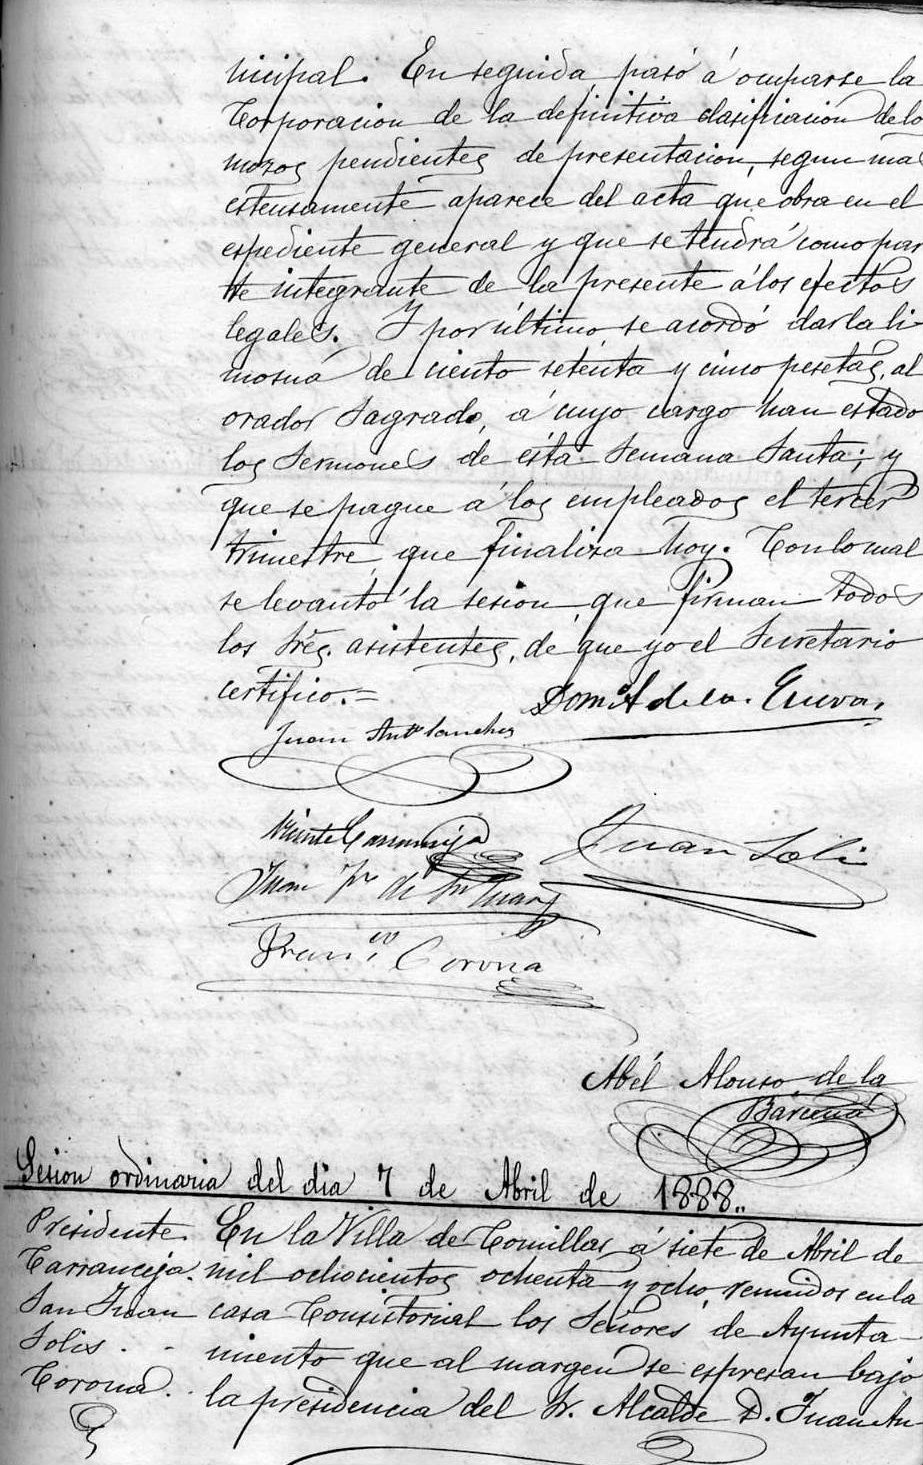 nicipal. En seguida pasó á ocuparse la
Corporacion de la definitiva clasificacion de lo
mozos pendientes de presentacion, segun ma
estensamente aparece del acta que obra en el
espediente general y que se tendrá como par
te integrante de la presente á los efectos
legales. Y por último se acordó dar la li-
mosna de ciento setenta y cinco pesetas, al
orador Sagrado, á cuyo cargo han estado
los Sermones de ésta Semana Santa; y
que se pague á los empleados el tercer
trimestre que finaliza hoy. Con lo cual
se levantó la sesion que firman todos
los Sres. asistentes, de que yo el Secretario
certifico.=
Domº A de la Cueva.
Juan Antº Sanchez
Vicente Carranceja
Juan Solis
Juan
Franco Corona
Abél Alonso de la
Bárcena
Sesion ordinaria del dia 7 de Abril de 1888..
Presidente. En la Villa de Comillas á siete de Abril de
Carranceja. mil ochocientos ochenta y ocho, reunidos en la
San Juan casa Consistorial los Señores de Ayunta-
Solis . - miento que al margen se espresan bajo
Corona. . la presidencia del Sr. Alcalde D. Juan An-